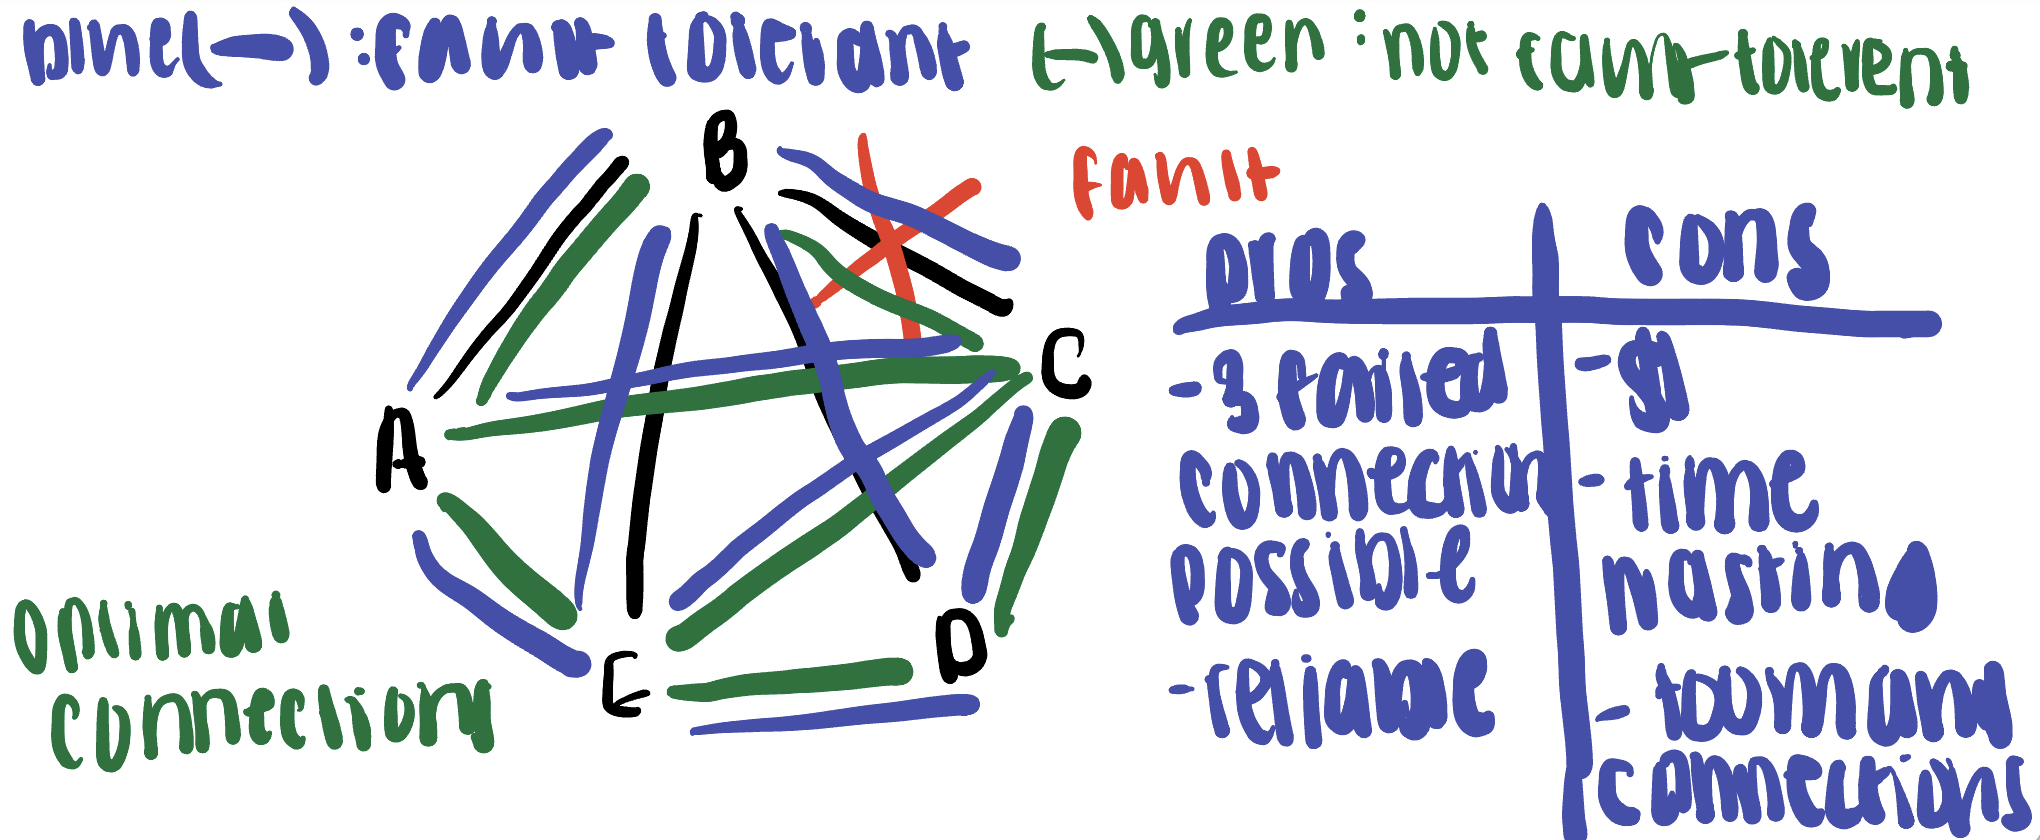 blue(—) : fault tolerant (—) green : not fault-tolerent
fault
B
C
A
E
D
optimal
connections
pros
- 3 failed
connection
possible
- reliable
cons
- $
- time
wasting
- too many
connections